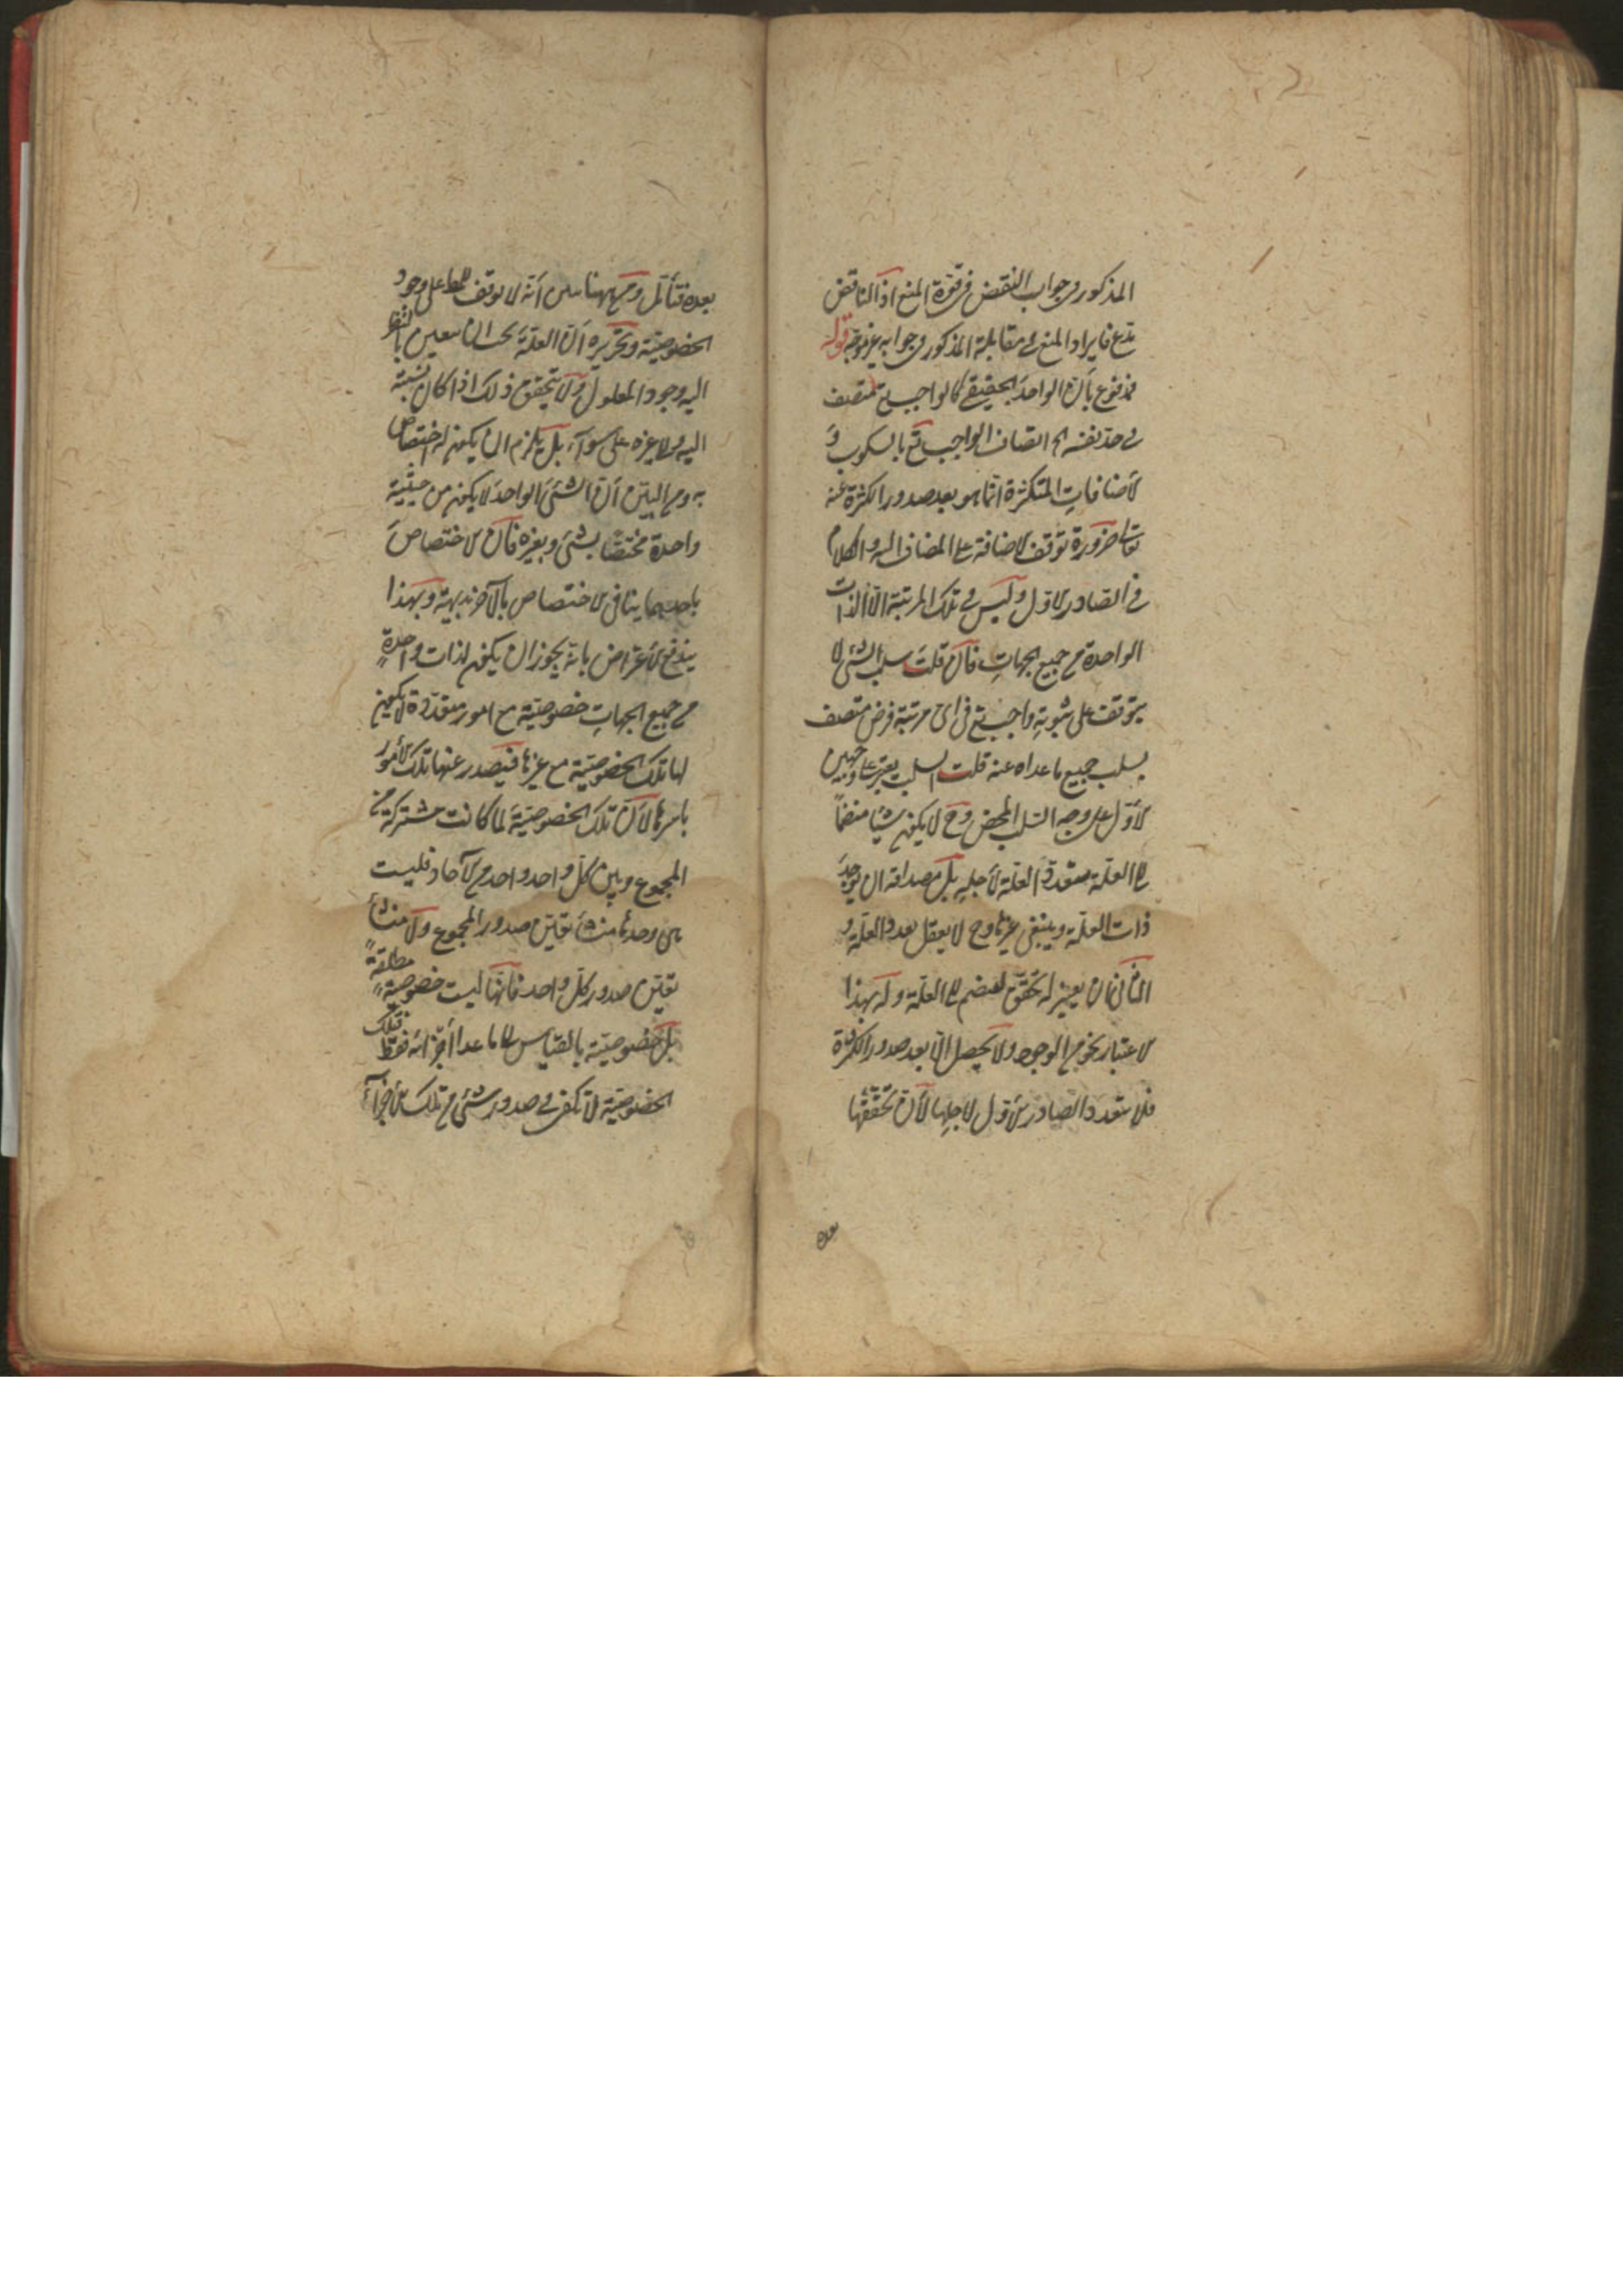 المذكور في جواب النقض في قوة المنع اذ الناقض
مدع فايراد المنع في مقابلة المذكور في جوابه غير موجه قوله
مدفوع بأن الواحد الحقيقي كالواجب تع متصف
في حد نفسه الخ اتصاف الواجب تع بالسلوب و
لاضافات المتكثرة انما هو بعد صدور الكثرة عنه
تعالى ضرورة توقف لاضافة على المضاف اليه والكلام
في الصادر لاول وليس في تلك المرتبة الا الذات
الواحدة من جميع الجهات فان قلت سلب الشئ لا
يتوقف على ثبوته واجب تع في اى مرتبة فرض متصف
بسلب جميع ما عداه عنه قلت السلب يعتبر على وجهين
لاول على وجه السلب المحض وح لا يكون شيئا منضما
الى العلة متعدد العلة لأجله بل مصداقه ان توجد
ذات العلة وينتفى غيرها وح لا يعقل تعدد العلة و
الثاني ان يعتبر له تحقق لينضم الى العلة وله بهذا
لاعتبار نحو من الوجود ولا يحصل الا بعد صدور الكثرة
فلا يتعدد الصادر لاول لاجلها لأن تحققها
بعده
بعده فتأمل وههنا أنه لا توقف على وجود
الخصوصية وتحريره ان العلة يجب ان يتعين بالنظر
اليه وجود المعلول ولا يتحقق ذلك اذا كان نسبته
اليه والى غيره على سواء بل يلزم ان يكون له اختصاص
به ومن البين أن الشئ الواحد لا يكون من حيثية
واحدة مختصا بشئ وبغيره فان لاختصاص
باحدهما ينافى لاختصاص بالآخر بديهة وبهذا
يندفع لأعتراض بانه يجوز ان يكون لذات واحدة
من جميع الجهات خصوصية مع امور متعددة لا يكون
لها تلك الخصوصية مع غيرها فيصدر عنها تلك لأمور
باسرها لأن تلك الخصوصية لما كانت مشتركة بين
المجموع وبين كل واحد واحد من لآحاد فليست
هى وحدها منشأ تعين صدور المجموع ولا منشأ
تعين صدور كل واحد فانها ليست خصوصية مطلقة
بل خصوصية بالقياس الى ما عدا أجزائه فقط فتلك
الخصوصية لا تكفى في صدور شئ من تلك لأجزاء